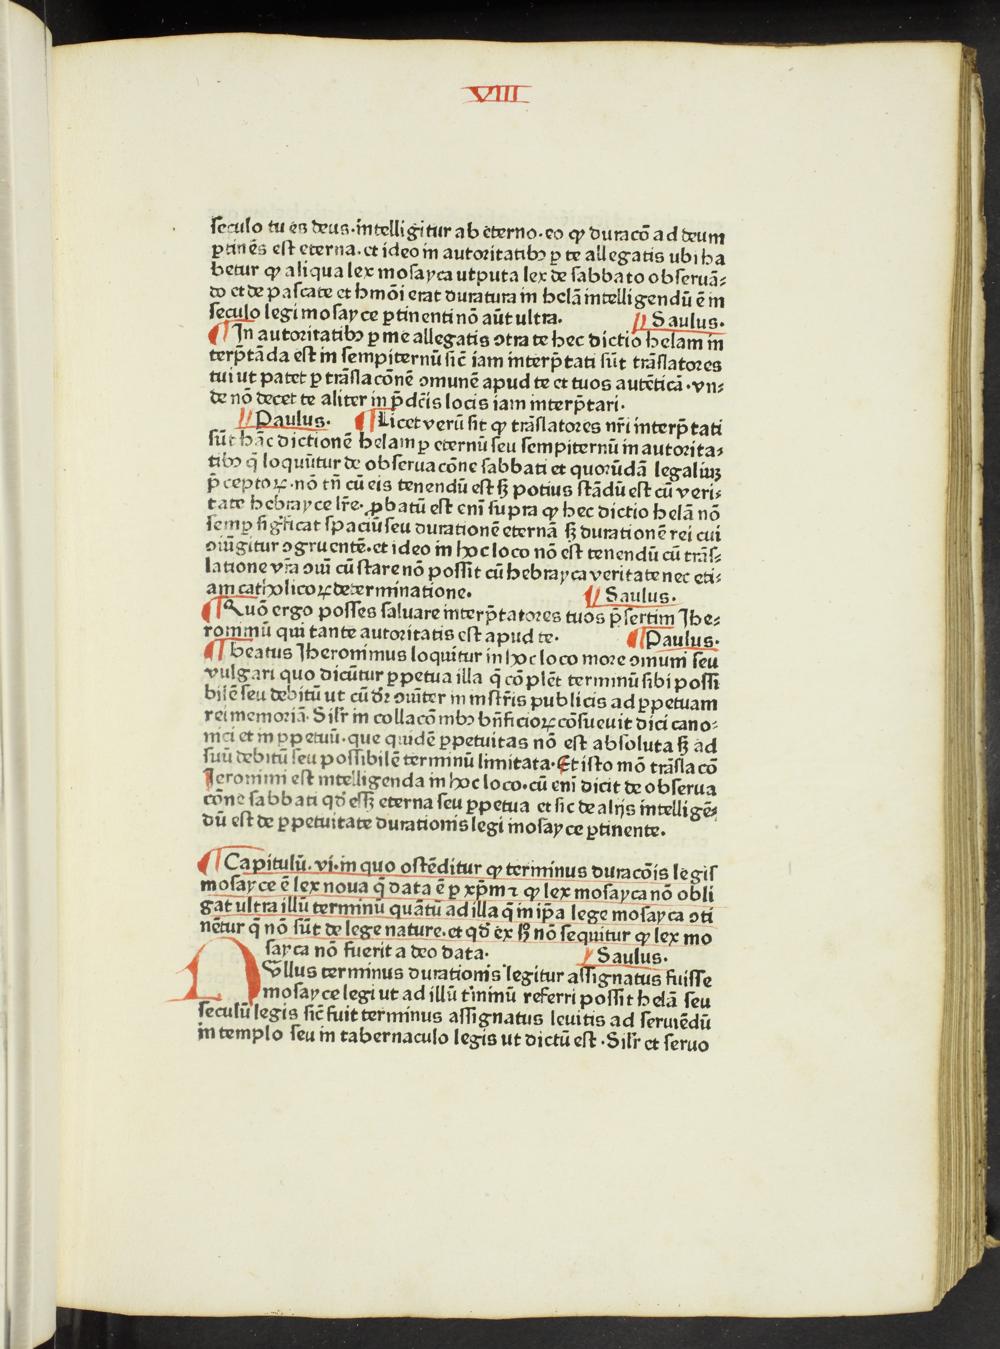 VIII
seculo tu es deus·intelligitur ab eterno·eo ꝙ duracōn ad deum
ꝑtinēs est eterna·et ideo in autoritatibꝰ ꝑ te allegatis ubi ha
betur ꝙ aliqua lex mosayca utputa lex de sabbato obseruā⸗
do et de pascate et hmōi erat duratura in helā intelligendū ē in
seculo legi mosayce ꝑtinenti nō aūt ultra. ¶ Saulus·
¶ In autoritatibꝰ ꝑ me allegatis ↄtra te hec dictio helam in
terp̄tāda est in sempiternū sic̄ iam interp̄tati sūt trāslatores
tui ut patet ꝑ trāslacōnē ↄmunē apud te et tuos autēticā·vn⸗
de nō decet te aliter in p̄dc̄is locis iam interp̄tari·
¶ Paulus· ¶ Licet verū sit ꝙ trāslatores nr̄i interp̄tati
sūt hāc dictionē helam ꝑ eternū seu sempiternū in autorita⸗
tibꝰ q̄ loquūtur de obseruacōne sabbati et quorūdā legaliuꝫ
p̄ceptoꝝ·nō tn̄ cū eis tenendū est sꝫ potius stādū est cū veri⸗
tate hebrayce lr̄e·ꝓbatū est eni̅ supra ꝙ hec dictio helā nō
semꝑ sigr̄ficat spaciū seu durationē eternā sꝫ durationē rei cui
ↄiūgitur ↄgruentē·et ideo in hoc loco nō est tenendū cū trās⸗
latione vr̄a ↄui̅ cū stare nō possit cū hebrayca veritate nec eti⸗
am catholicoꝝ determinatione. ¶ Saulus·
¶ Quō ergo posses saluare interp̄tatores tuos p̄sertim Jhe⸗
rominū qui tante autoritatis est apud te· ¶ Paulus·
¶ Beatus Jheronimus loquitur in hoc loco more ↄmuni seu
vulgari quo dicūtur ꝑpetua illa q̄ cōplēt terminū sibi possi
bilē seu debitū ut cū dr̄ ↄuīter in instr̄is publicis ad ꝑpetuam
rei memoriā·Silr̄ in collacōnibꝰ bn̄ficioꝝ cōsueuit dici cano⸗
nici et in ꝑpetuū·que quidē ꝑpetuitas nō est absoluta sꝫ ad
suū debitū seu possibilē terminū limitata·Et isto mō trāslacō
Jeronimi est intelligenda in hoc loco·cū eni̅ dicit de obserua
cōne sabbati qd̄ essꝫ eterna seu ꝑpetua et sic de alijs intelligē⸗
dū est de ꝑpetuitate durationis legi mosayce ꝑtinente.
¶ Capitulū·vi·in quo ostēditur ꝙ terminus duracōis legis
mosayce ē lex noua q̄ data ē ꝑ xp̄m ⁊ ꝙ lex mosayca nō obli
gat ultra illū terminū quātū ad illa q̄ in ip̄a lege mosayca ↄti
nētur q̄ nō sūt de lege nature·et qd̄ ex hꝫ nō sequitur ꝙ lex mo
sayca nō fuerit a deo data· ¶ Saulus·
NVllus terminus durationis legitur assignatus fuisse
mosayce legi ut ad illū t̄minū referri possit helā seu
seculū legis sic̄ fuit terminus assignatus leuitis ad seruiēdū
in templo seu in tabernaculo legis ut dictū est·Silr̄ et seruo